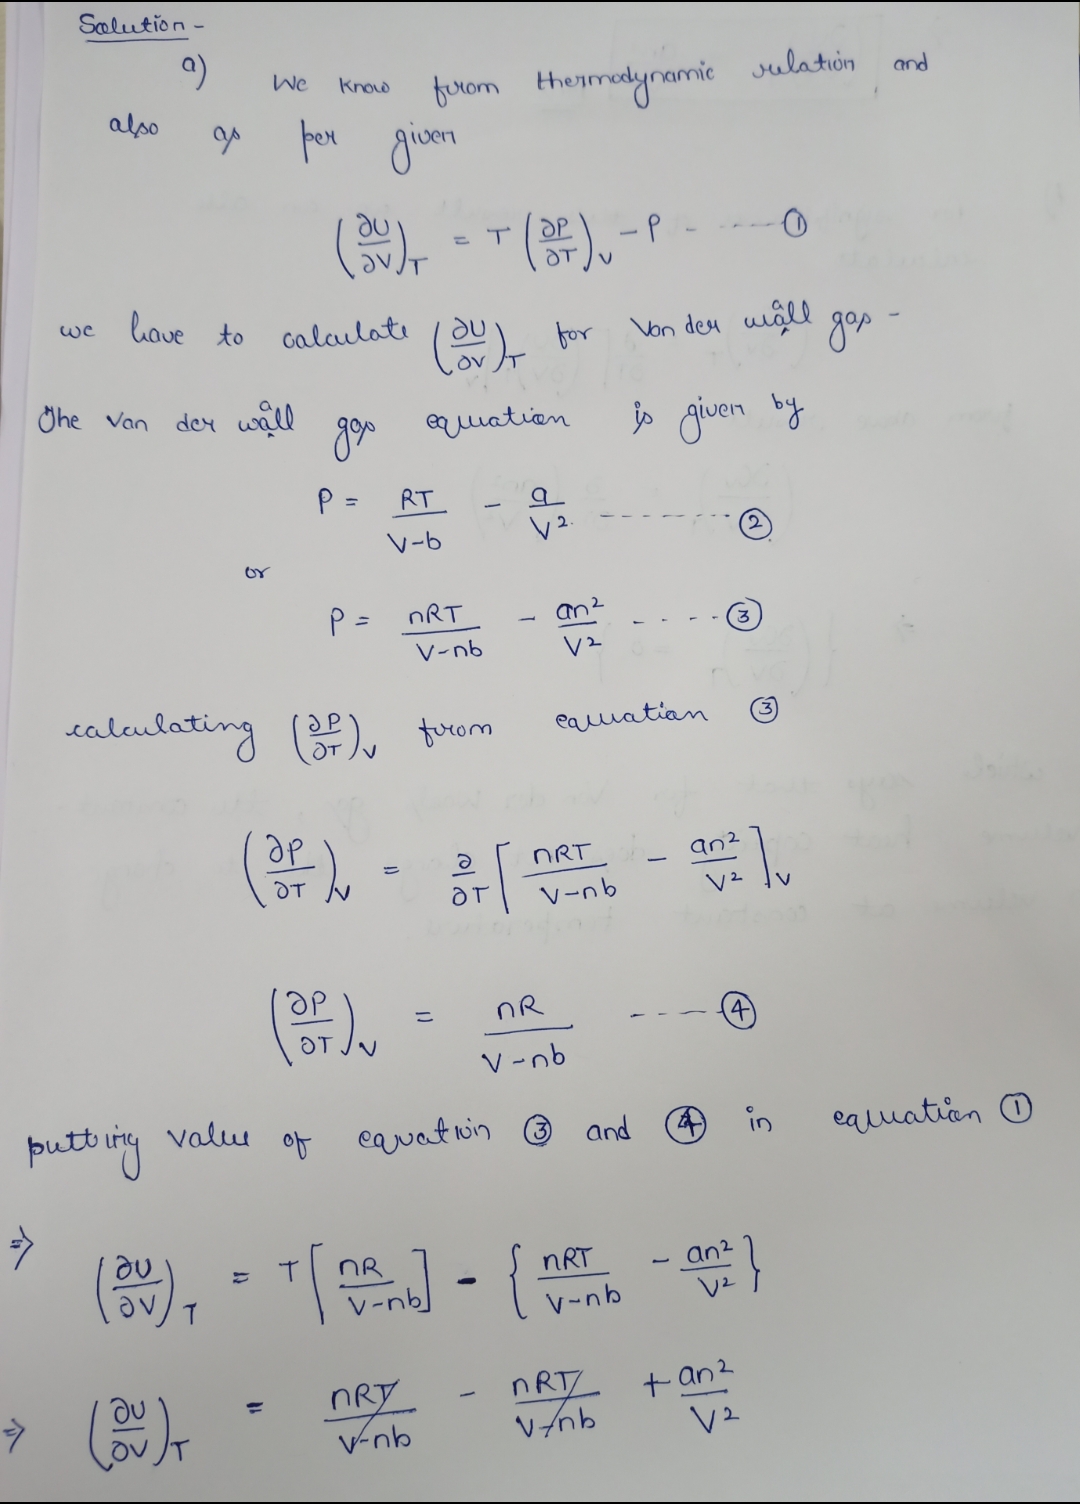 Solution -
a) We know from thermodynamic relation and
also as per given
(∂U/∂V)_T = T (∂P/∂T)_V - P - ----- ①
we have to calculate (∂U/∂V)_T for Van der wåll gas -
The Van der wåll gas equation is given by
P = RT/(V-b) - a/V² --------- ②
or
P = nRT/(V-nb) - an²/V² ----- ③
calculating (∂P/∂T)_V from equation ③
(∂P/∂T)_V = ∂/∂T [nRT/(V-nb) - an²/V²]_V
(∂P/∂T)_V = nR/(V-nb) ---- ④
putting value of equation ③ and ④ in equation ①
⇒ (∂U/∂V)_T = T [nR/(V-nb)] - {nRT/(V-nb) - an²/V²}
⇒ (∂U/∂V)_T = nRT/(V-nb) - nRT/(V-nb) + an²/V²